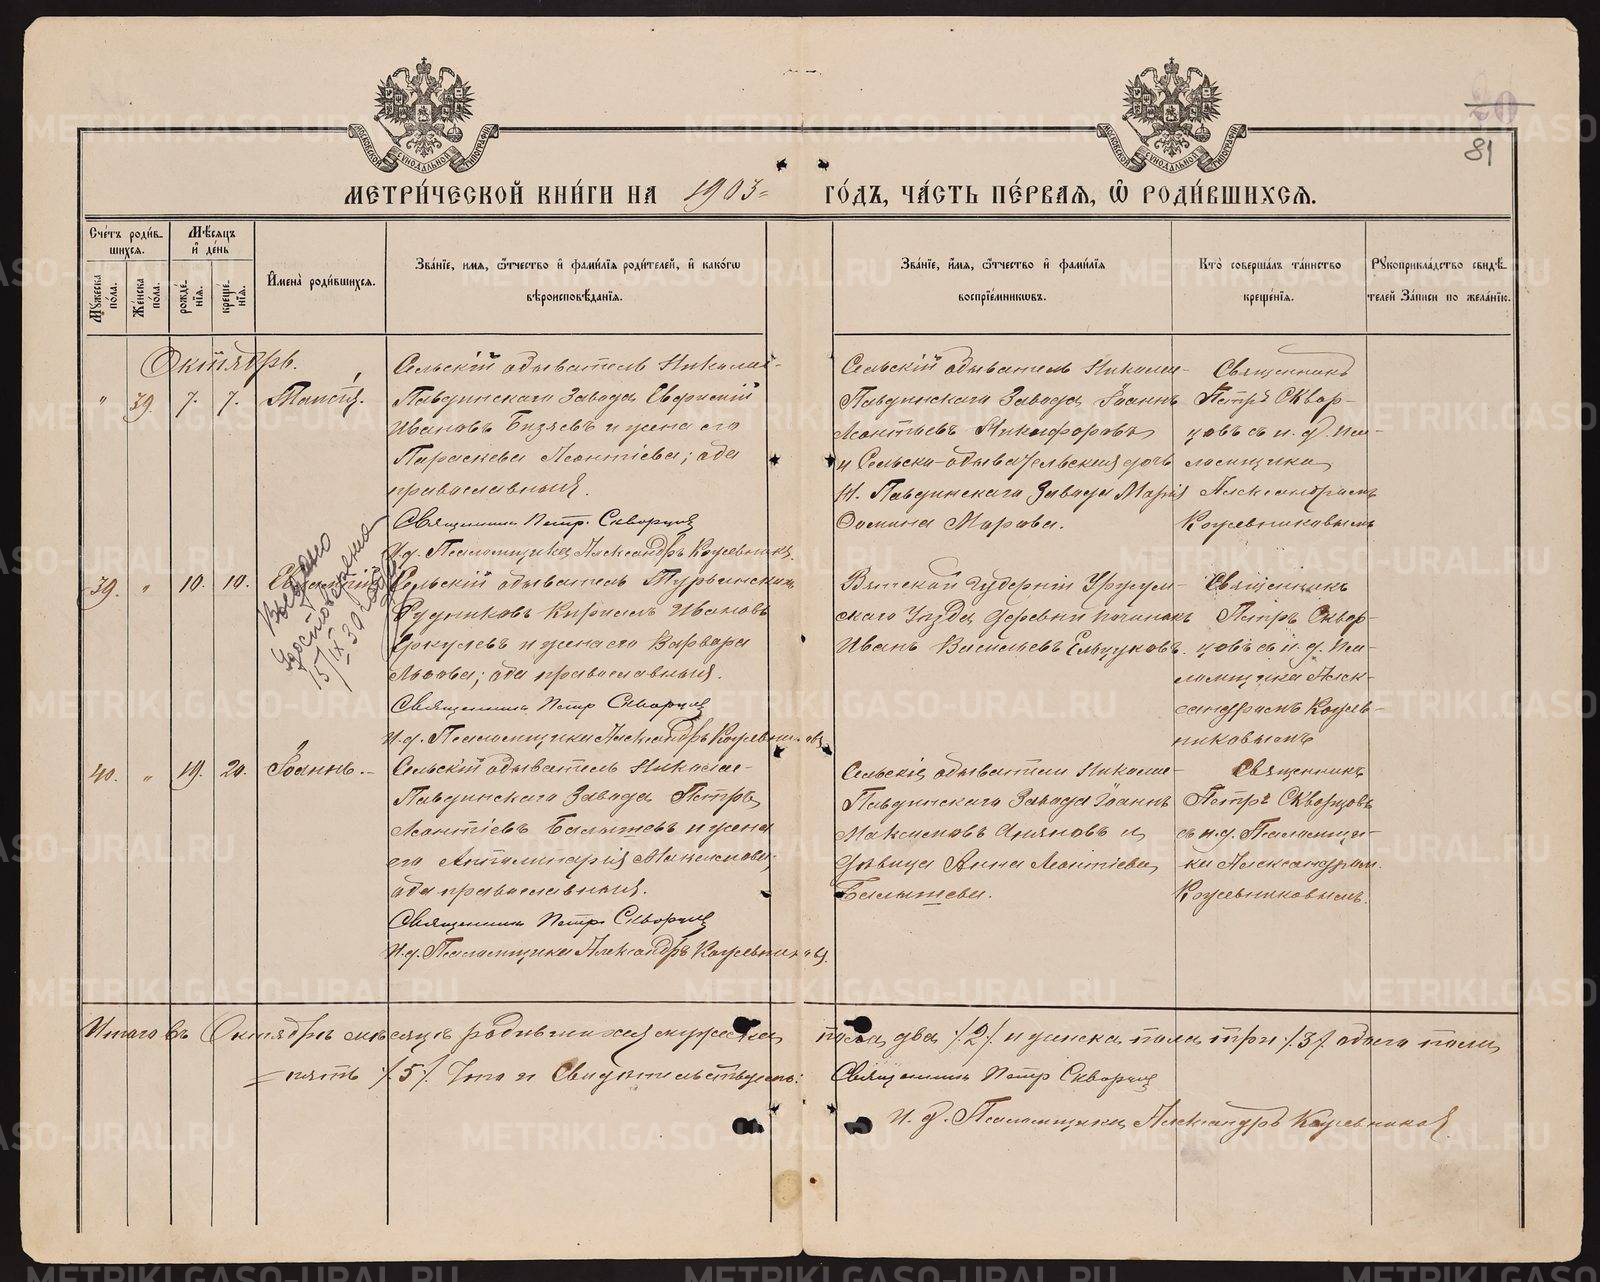 20
81
МЕТРИ́ЧЕСКОЙ КНИ́ГИ НА 1903 ГО́ДЪ, ЧА́СТЬ ПЕ́РВАЯ, Ѡ РОДИ́ВШИХСЯ.
Сче́тъ роди́вшихся.
Му́жеска по́ла.
Же́нска по́ла.
Мѣ́сяцъ и де́нь
рожде́нїя.
креще́нїя.
Имена̀ роди́вшихся.
Зва́нїе, имя, ѻ́тчество и фами́лїя роди́телей, и како́гѡ
вѣроисповѣ́данїя.
Зва́нїе, и́мя, ѻ́тчество и фами́лїя
воспрїе́мникѡвъ.
Кто̀ соверша́лъ та́инство
креще́нїя.
Рукоприкла́дство свидѣ́телей за́писи по жела́нїю.
Октябрь.
" 39. 7. 7. Таисія.
Сельскій обыватель Николае-
Павдинскаго Завода Евфимій
Ивановъ Бизяевъ и жена его
Параскева Леонтіева; оба
православныя.
Священникъ Петр. Скворцов
И. д. Псаломщика Александръ Кожевников
Сельскій обыватель Николае-
Павдинскаго Завода Іоаннъ
Леонтьевъ Никифоровъ
и Сельско-обывательская дочь
Н. Павдинскаго Завода Марія
Фомина Марова.
Священникъ
Петръ Сквор-
цовъ съ и. д. Пса-
ломщика
Александромъ
Кожевниковымъ
39. " 10. 10. Евлампій
Выдано
удостоверение
15/IX 30
Сельскій обыватель Турьинскихъ
Рудниковъ Кириллъ Ивановъ
и жена его Варвара
Львова; оба православныя.
Священникъ Петр Скворцов
И. д. Псаломщика Александръ Кожевников
Вятской Губерніи Уржум-
скаго Уѣзда деревни Починокъ
Иванъ Васильевъ Ельцуковъ.
Священникъ
Петръ Сквор-
цовъ съ и. д. Пса-
ломщика Алек-
сандромъ Кожев-
никовымъ
40. " 19. 20. Іоаннъ.
Сельскій обыватель Николае-
Павдинскаго Завода Петръ
Леонтіевъ Балышевъ и жена
его Апполинарія Максимова;
оба православныя.
Священникъ Петр. Скворцов
И. д. Псаломщика Александръ Кожевников
Сельскіе обыватели Николае-
Павдинскаго Завода Іоаннъ
Максимовъ и
дѣвица Анна Леонтіева
Балышева.
Священникъ
Петръ Скворцовъ
съ и. д. Псаломщи-
ка Александром.
Кожевниковымъ.
Итого въ Октябрѣ мѣсяцѣ родившихся мужеска пола два /2/ и женска пола три /3/ обоего пола
пять /5/ Что и Свидѣтельствуемъ: Священникъ Петр Скворцов
И. д. Псаломщика Александръ Кожевников